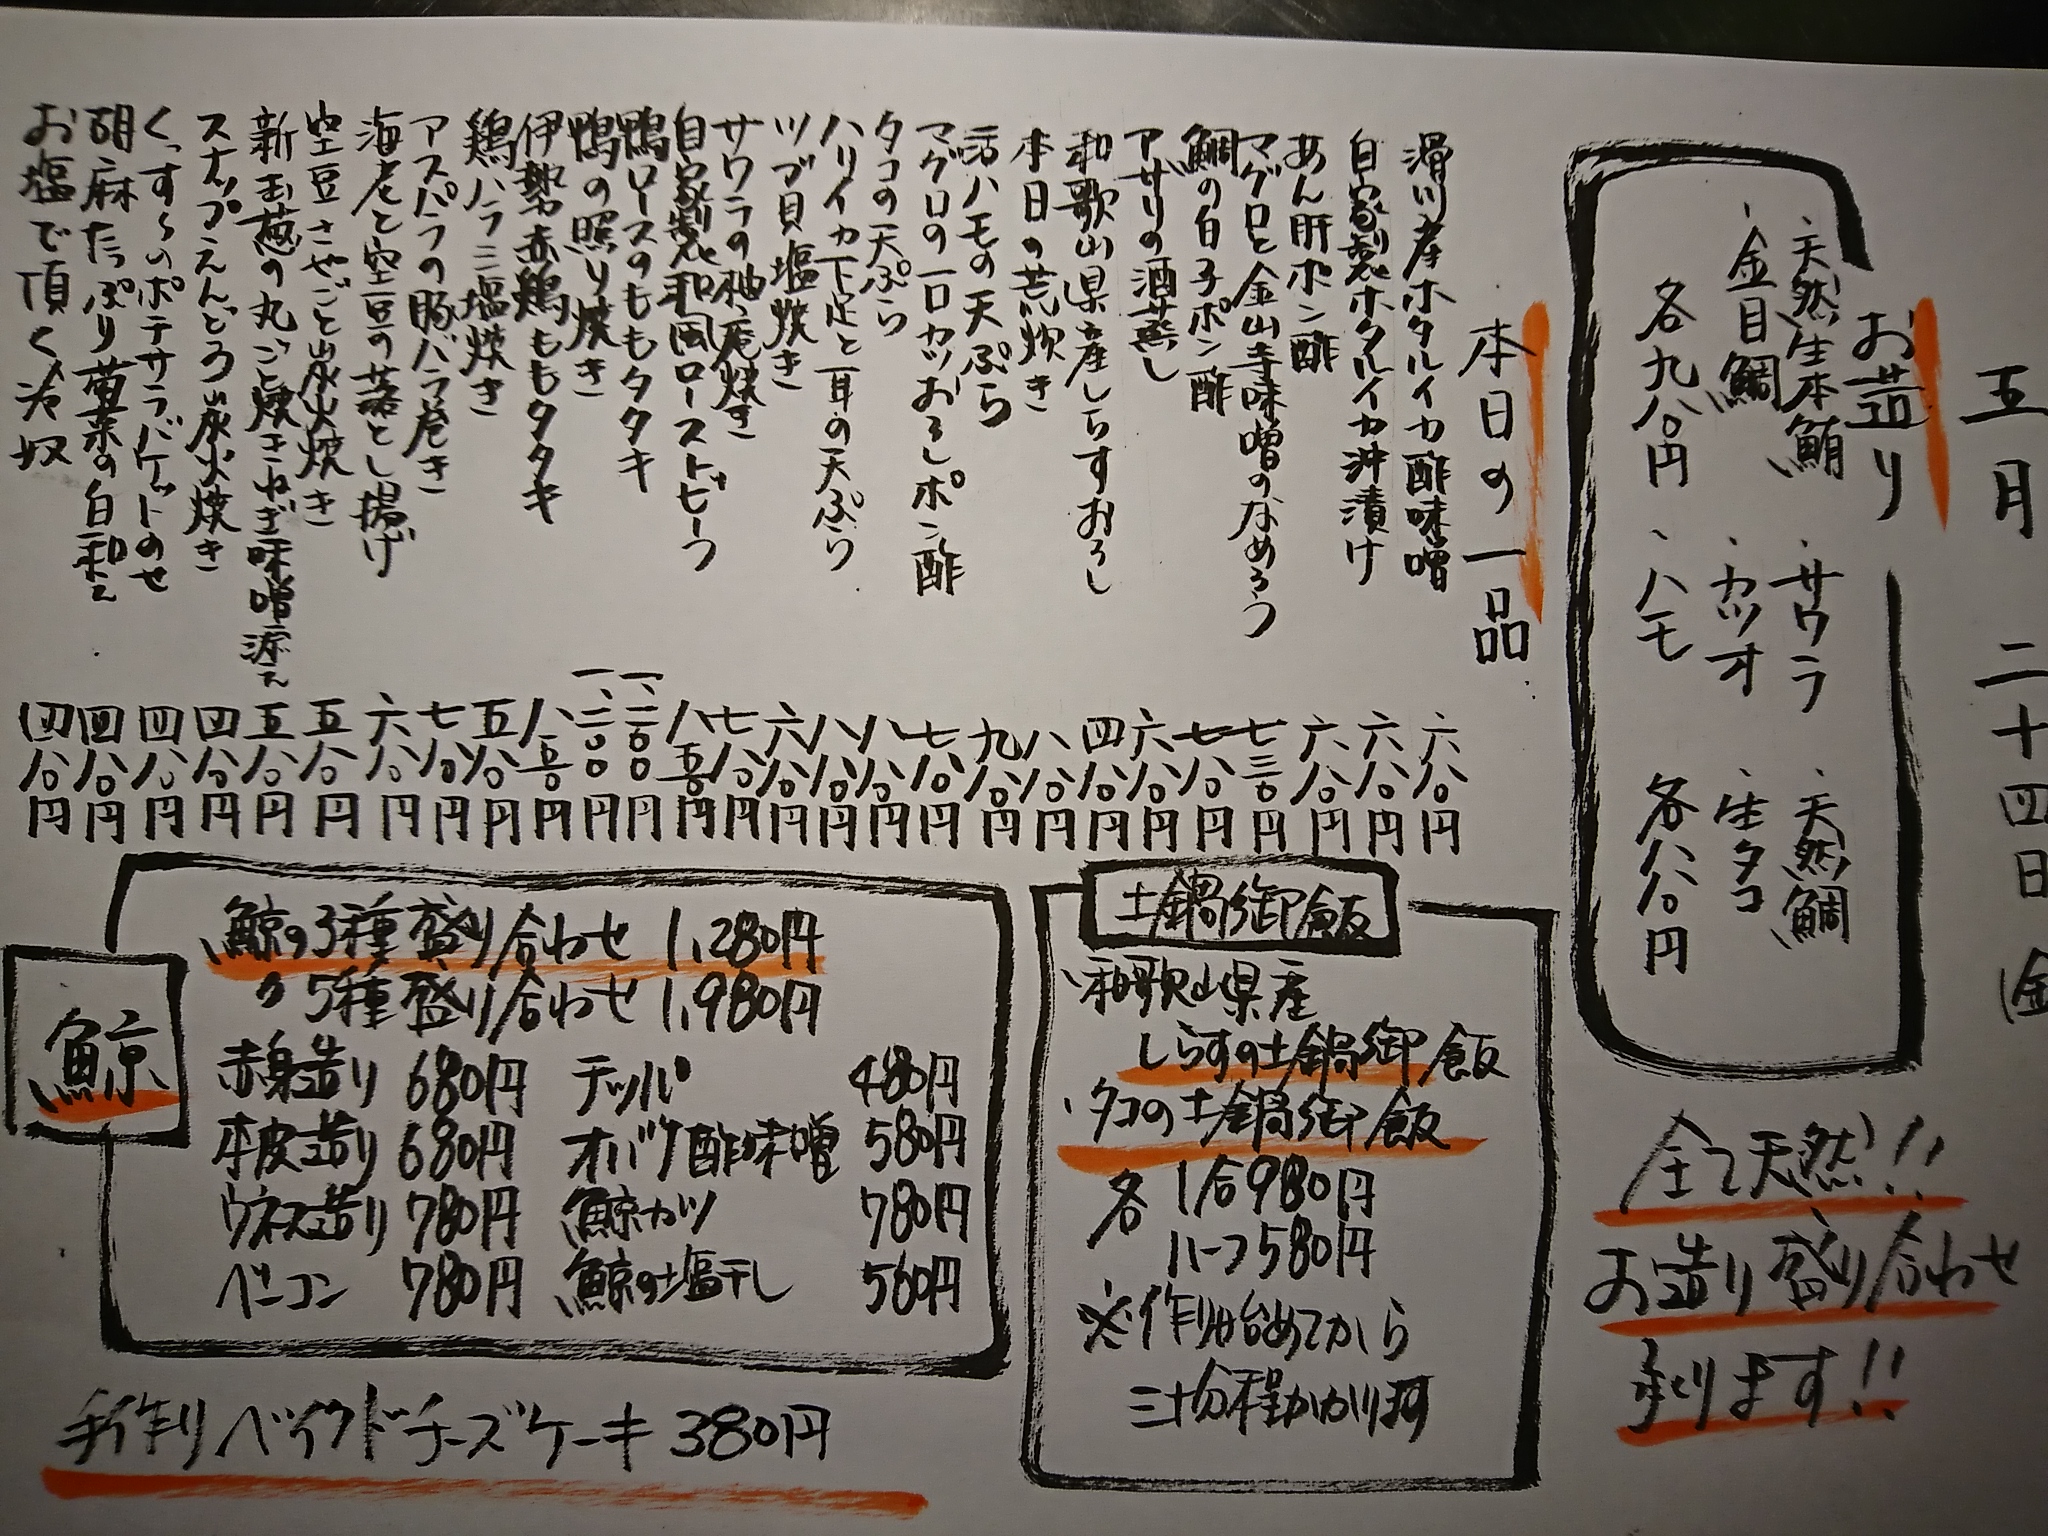 五月 二十四日(金
お造り
・天然生本鮪 ・サワラ ・天然鯛
・金目鯛 ・カツオ ・生タコ
各九八〇円 ・ハモ 各八八〇円
全て天然!!
お造り盛り合わせ
承ります!!
本日の一品
滑川産ホタルイカ酢味噌 六八〇円
自家製ホタルイカ沖漬け 六八〇円
あん肝ポン酢 六八〇円
マグロと金山寺味噌のなめろう 七三〇円
鯛の白子ポン酢 七八〇円
アサリの酒蒸し 六八〇円
和歌山県産しらすおろし 四八〇円
本日の荒炊き 八八〇円
活ハモの天ぷら 九八〇円
マグロの一口カツおろしポン酢 七八〇円
タコの天ぷら 八八〇円
ハリイカ下足と耳の天ぷら 八八〇円
ツブ貝塩焼き 六八〇円
サワラの柚庵焼き 七八〇円
自家製和風ローストビーフ 八五〇円
鴨ロースのももタタキ 一、二〇〇円
鴨の照り焼き 一、二〇〇円
伊勢赤鶏ももタタキ 八五〇円
鶏ハラミ塩焼き 五八〇円
アスパラの豚バラ巻き 七八〇円
海老と空豆の落とし揚げ 六八〇円
空豆さやごと炭火焼き 五八〇円
新玉葱の丸ごと焼きねぎ味噌添え 五八〇円
スナップえんどう炭火焼き 四八〇円
くっすんのポテサラバケットのせ 四八〇円
胡麻たっぷり菊菜の白和え 四八〇円
お塩で頂く冷奴 四八〇円
土鍋御飯
・和歌山県産
しらすの土鍋御飯
・タコの土鍋御飯
各 1合980円
ハーフ580円
※作り始めてから
三十分程かかります
鯨
鯨の3種盛り合わせ 1,280円
〃 5種盛り合わせ 1,980円
赤身造り 680円 テッパ 480円
本皮造り 680円 オバケ酢味噌 580円
ウネス造り 780円 鯨カツ 780円
ベーコン 780円 鯨の塩干し 560円
手作りベイクドチーズケーキ 380円